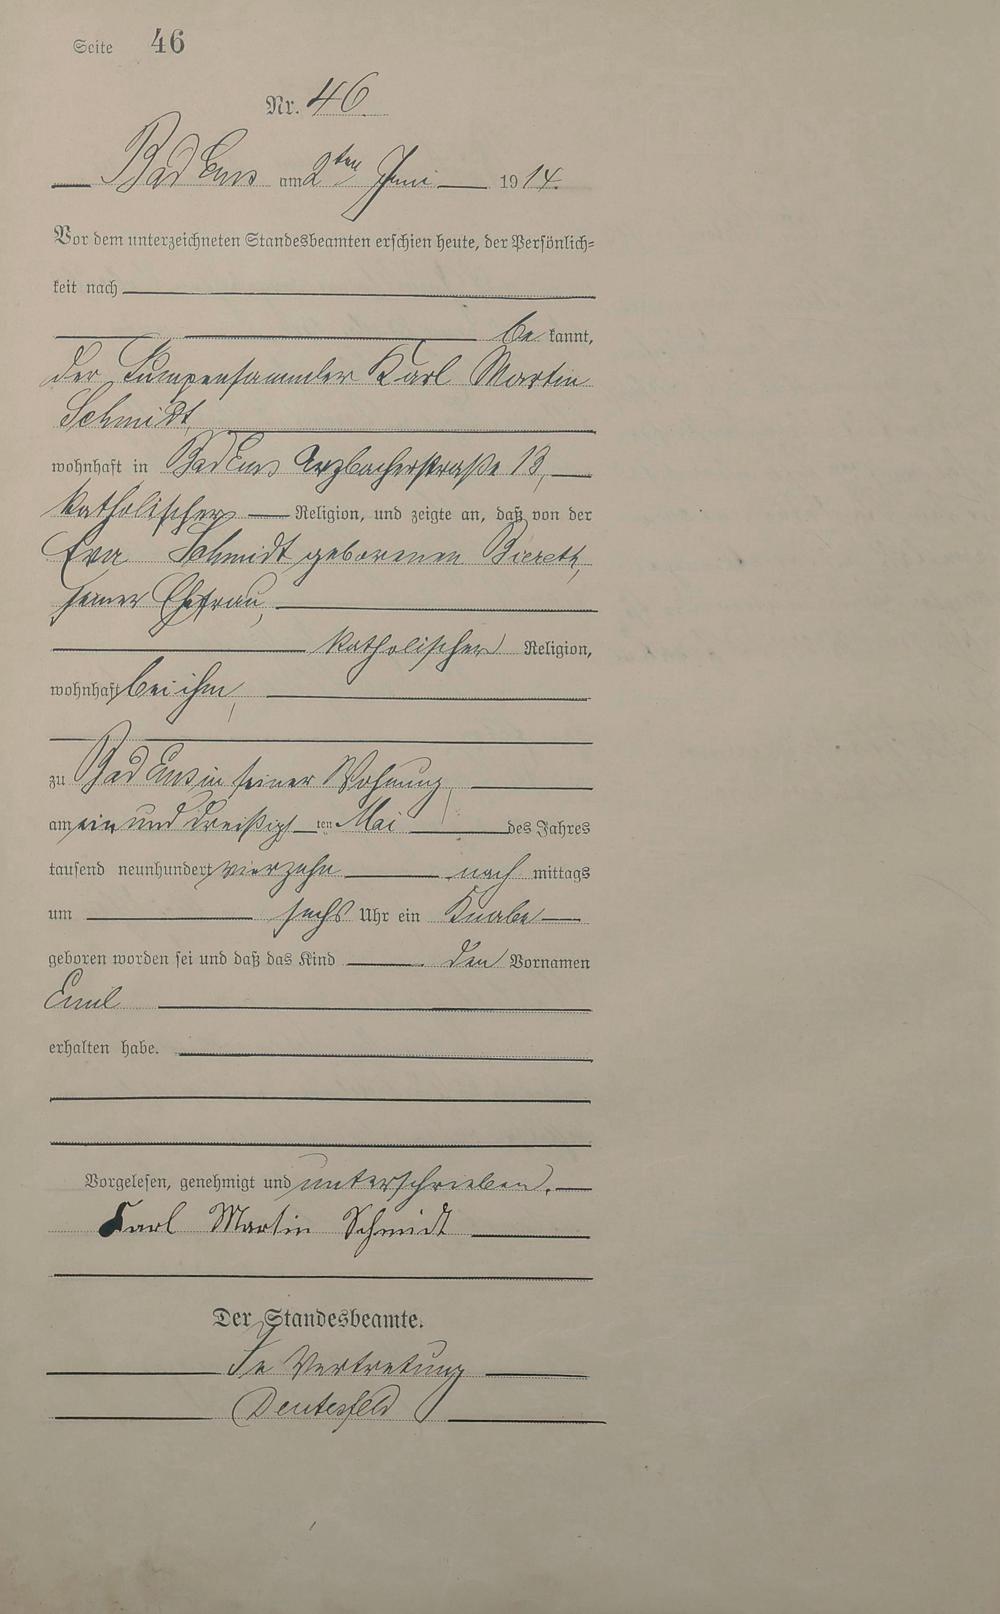 Seite 46
Nr. 46.
Bad Ems am 2ten Juni 1914.
Vor dem unterzeichneten Standesbeamten erschien heute, der Persönlich-
keit nach
be kannt,
der Lumpensammler Karl Martin
Schmidt,
wohnhaft in Bad Ems Arzbacherstraße 13,
katholischer Religion, und zeigte an, daß von der
Eva Schmidt geborenen Biereth,
seiner Ehefrau,
katholischer Religion,
wohnhaft bei ihm,
zu Bad Ems in seiner Wohnung,
am ein und dreißigsten Mai des Jahres
tausend neunhundert vierzehn nach mittags
um sechs Uhr ein Knabe
geboren worden sei und daß das Kind den Vornamen
Emil
erhalten habe.
Vorgelesen, genehmigt und unterschrieben.
Karl Martin Schmidt
Der Standesbeamte.
In Vertretung